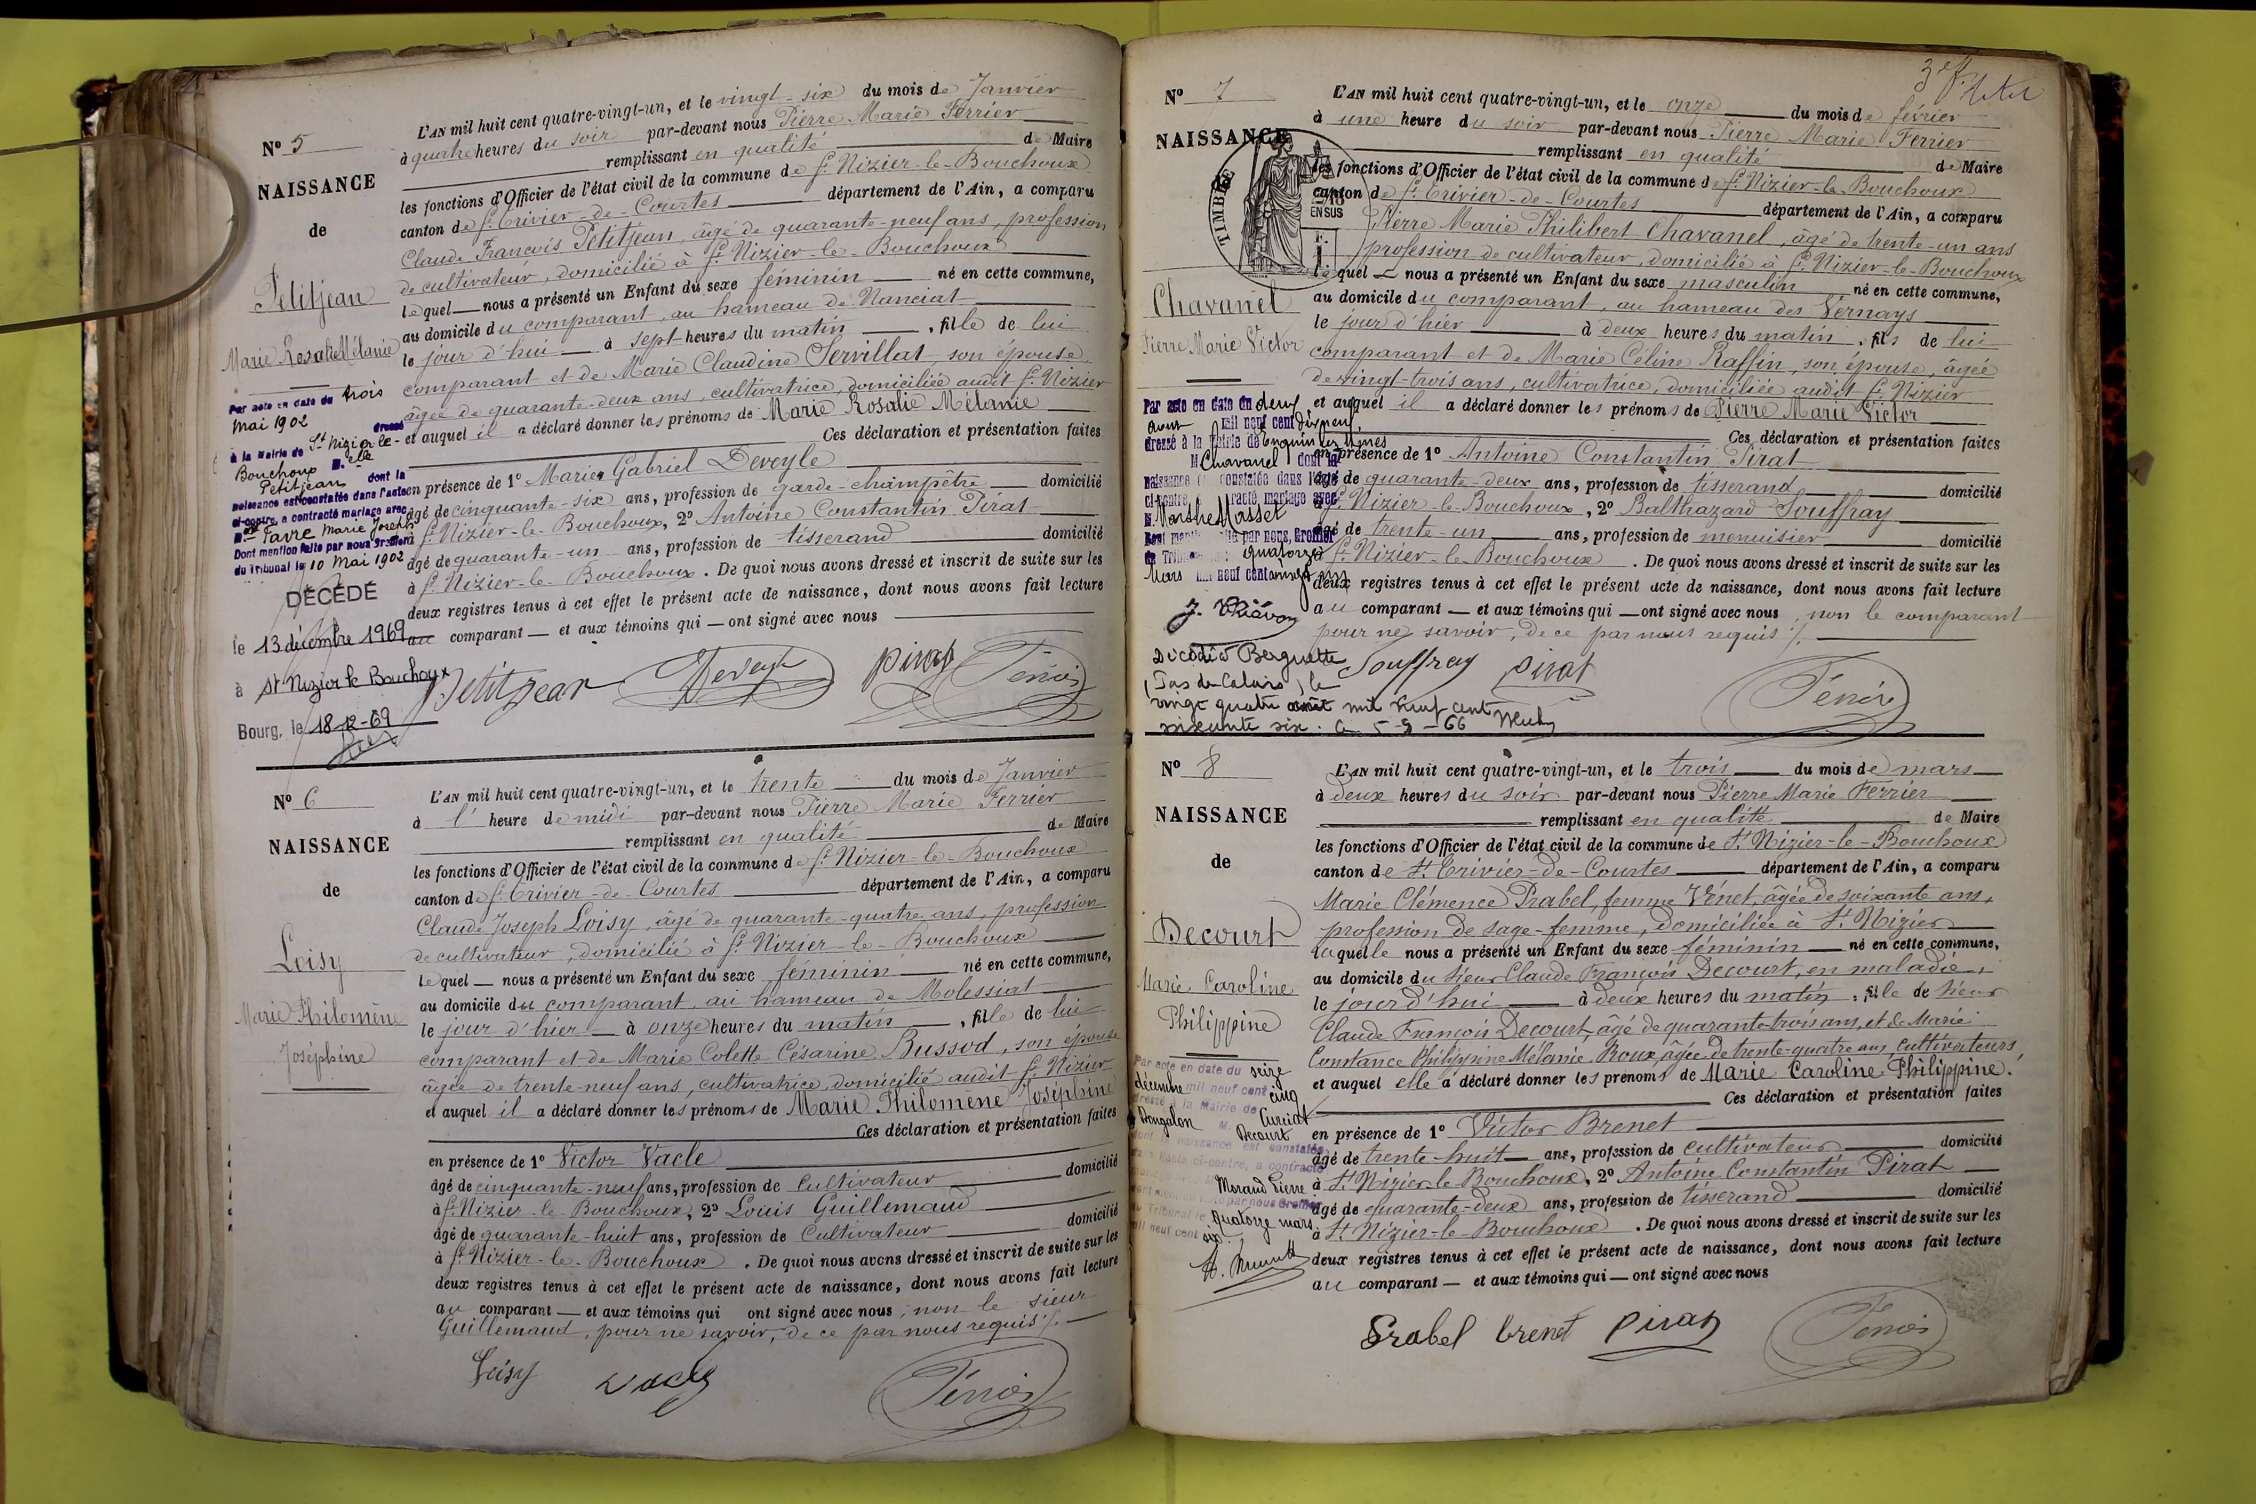 N° 5
NAISSANCE
de
Petitjean
Marie Rosalie Mélanie
Par acte en date du trois
mai 1902 dressé
à la Mairie de St Nizier le-
Bouchoux M. elle
Petitjean dont la
naissance est constatée dans l'acte
ci-contre, a contracté mariage avec
Favre Marie Joseph
Dont mention faite par nous Greffier
du Tribunal le 10 Mai 1902
DÉCÉDÉ
le 13 décembre 1969
à St Nizier le Bouchoux
Bourg, le 18-12-69
L'AN mil huit cent quatre-vingt-un, et le vingt-six du mois de Janvier
à quatre heures du soir par-devant nous Pierre Marie Ferrier
remplissant en qualité de Maire
les fonctions d'Officier de l'état civil de la commune de St Nizier-le-Bouchoux
canton de St Trivier-de-Courtes département de l'Ain, a comparu
Claude François Petitjean, âgé de quarante-neuf ans, profession
de cultivateur, domicilié à St Nizier-le-Bouchoux
lequel nous a présenté un Enfant du sexe féminin né en cette commune,
au domicile du comparant, au hameau de Nanciat
le jour d'hui à sept heures du matin, fille de lui
comparant et de Marie Claudine Servillat son épouse
âgée de quarante-deux ans, cultivatrice, domiciliée audit St Nizier
et auquel il a déclaré donner les prénoms de Marie Rosalie Mélanie
Ces déclaration et présentation faites
en présence de 1° Marie Gabriel Deveyle
âgé de cinquante-six ans, profession de garde-champêtre domicilié
à St Nizier-le-Bouchoux, 2° Antoine Constantin Pirat
âgé de quarante-un ans, profession de tisserand domicilié
à St Nizier-le-Bouchoux. De quoi nous avons dressé et inscrit de suite sur les
deux registres tenus à cet effet le présent acte de naissance, dont nous avons fait lecture
au comparant et aux témoins qui ont signé avec nous
Petitjean Devey Pirat Ferrier
N° 6
NAISSANCE
de
Loisy
Marie Philomène
Joséphine
L'AN mil huit cent quatre-vingt-un, et le trente du mois de Janvier
à l' heure de midi par-devant nous Pierre Marie Ferrier
remplissant en qualité de Maire
les fonctions d'Officier de l'état civil de la commune de St Nizier-le-Bouchoux
canton de St Trivier-de-Courtes département de l'Ain, a comparu
Claude Joseph Loisy, âgé de quarante-quatre ans, profession
de cultivateur, domicilié à St Nizier-le-Bouchoux
lequel nous a présenté un Enfant du sexe féminin né en cette commune,
au domicile du comparant, au hameau de Molessiat
le jour d'hier à onze heures du matin, fille de lui
comparant et de Marie Colette Césarine Bussod, son épouse
âgée de trente-neuf ans, cultivatrice, domicilié audit St Nizier
et auquel il a déclaré donner les prénoms de Marie Philomène Joséphine
Ces déclaration et présentation faites
en présence de 1° Victor Vacle
âgé de cinquante-neuf ans, profession de cultivateur domicilié
à St Nizier-le-Bouchoux, 2° Louis Guillemaud
âgé de quarante-huit ans, profession de Cultivateur domicilié
à St Nizier-le-Bouchoux. De quoi nous avons dressé et inscrit de suite sur les
deux registres tenus à cet effet le présent acte de naissance, dont nous avons fait lecture
au comparant et aux témoins qui ont signé avec nous, non le sieur
Guillemaud, pour ne savoir, de ce par nous requis ./.
Loisy Vacle Ferrier
3e f.
N° 7
NAISSANCE
TIMBRE
EN SUS
Chavanel
Pierre Marie Victor
Par acte en date du deux
août mil neuf cent dix neuf
dressé à la Mairie de Enquin les Mines
M. Chavanel dont la
naissance est constatée dans l'acte
ci-contre, a contracté mariage avec
M. Marthe Masset
Dont mention faite par nous, Greffier
du Tribunal quatorze
Mars mil neuf cent vingt un
Décédé à Berguette
(Pas de Calais) le
vingt quatre août mil neuf cent
soixante six. Le 5-9-66
L'AN mil huit cent quatre-vingt-un, et le onze du mois de février
à une heure du soir par-devant nous Pierre Marie Ferrier
remplissant en qualité de Maire
les fonctions d'Officier de l'état civil de la commune de St Nizier-le-Bouchoux
canton de St Trivier-de-Courtes département de l'Ain, a comparu
Pierre Marie Philibert Chavanel, âgé de trente-un ans
profession de cultivateur, domicilié à St Nizier-le-Bouchoux
lequel nous a présenté un Enfant du sexe masculin né en cette commune,
au domicile du comparant, au hameau des Vernays
le jour d'hier à deux heures du matin, fils de lui
comparant et de Marie Céline Raffin, son épouse, âgée
de vingt-trois ans, cultivatrice, domiciliée audit St Nizier
et auquel il a déclaré donner les prénoms de Pierre Marie Victor
Ces déclaration et présentation faites
en présence de 1° Antoine Constantin Pirat
âgé de quarante-deux ans, profession de tisserand domicilié
à St Nizier-le-Bouchoux, 2° Balthazard Souffray
âgé de trente-un ans, profession de menuisier domicilié
à St Nizier-le-Bouchoux. De quoi nous avons dressé et inscrit de suite sur les
deux registres tenus à cet effet le présent acte de naissance, dont nous avons fait lecture
au comparant et aux témoins qui ont signé avec nous, non le comparant
pour ne savoir, de ce par nous requis ./.
Souffray Pirat Ferrier
N° 8
NAISSANCE
de
Decourt
Marie Caroline
Philippine
Par acte en date du seize
décembre mil neuf cent cinq
dressé à la Mairie de Curciat
Dongalon M. Decourt
dont la naissance est constatée
dans l'acte ci-contre, a contracté
Morand Pierre
par nous Greffier
du Tribunal le quatorze mars
mil neuf cent six
L'AN mil huit cent quatre-vingt-un, et le trois du mois de mars
à deux heures du soir par-devant nous Pierre Marie Ferrier
remplissant en qualité de Maire
les fonctions d'Officier de l'état civil de la commune de St Nizier-le-Bouchoux
canton de St Trivier-de-Courtes département de l'Ain, a comparu
Marie Clémence Prabel, femme Vénet, âgée de soixante ans,
profession de sage-femme, domiciliée à St Nizier
laquelle nous a présenté un Enfant du sexe féminin né en cette commune,
au domicile du sieur Claude François Decourt, en maladie,
le jour d'hui à deux heures du matin, fille de sieur
Claude François Decourt, âgé de quarante-trois ans, et de Marie
Constance Philippine Mélanie Roux âgée de trente-quatre ans, cultivateurs,
et auquel elle a déclaré donner les prénoms de Marie Caroline Philippine.
Ces déclaration et présentation faites
en présence de 1° Victor Brenet
âgé de trente-huit ans, profession de cultivateur domicilié
à St Nizier-le-Bouchoux, 2° Antoine Constantin Pirat
âgé de quarante-deux ans, profession de tisserand domicilié
à St Nizier-le-Bouchoux. De quoi nous avons dressé et inscrit de suite sur les
deux registres tenus à cet effet le présent acte de naissance, dont nous avons fait lecture
au comparant et aux témoins qui ont signé avec nous
Prabel brenet Pirat Ferrier